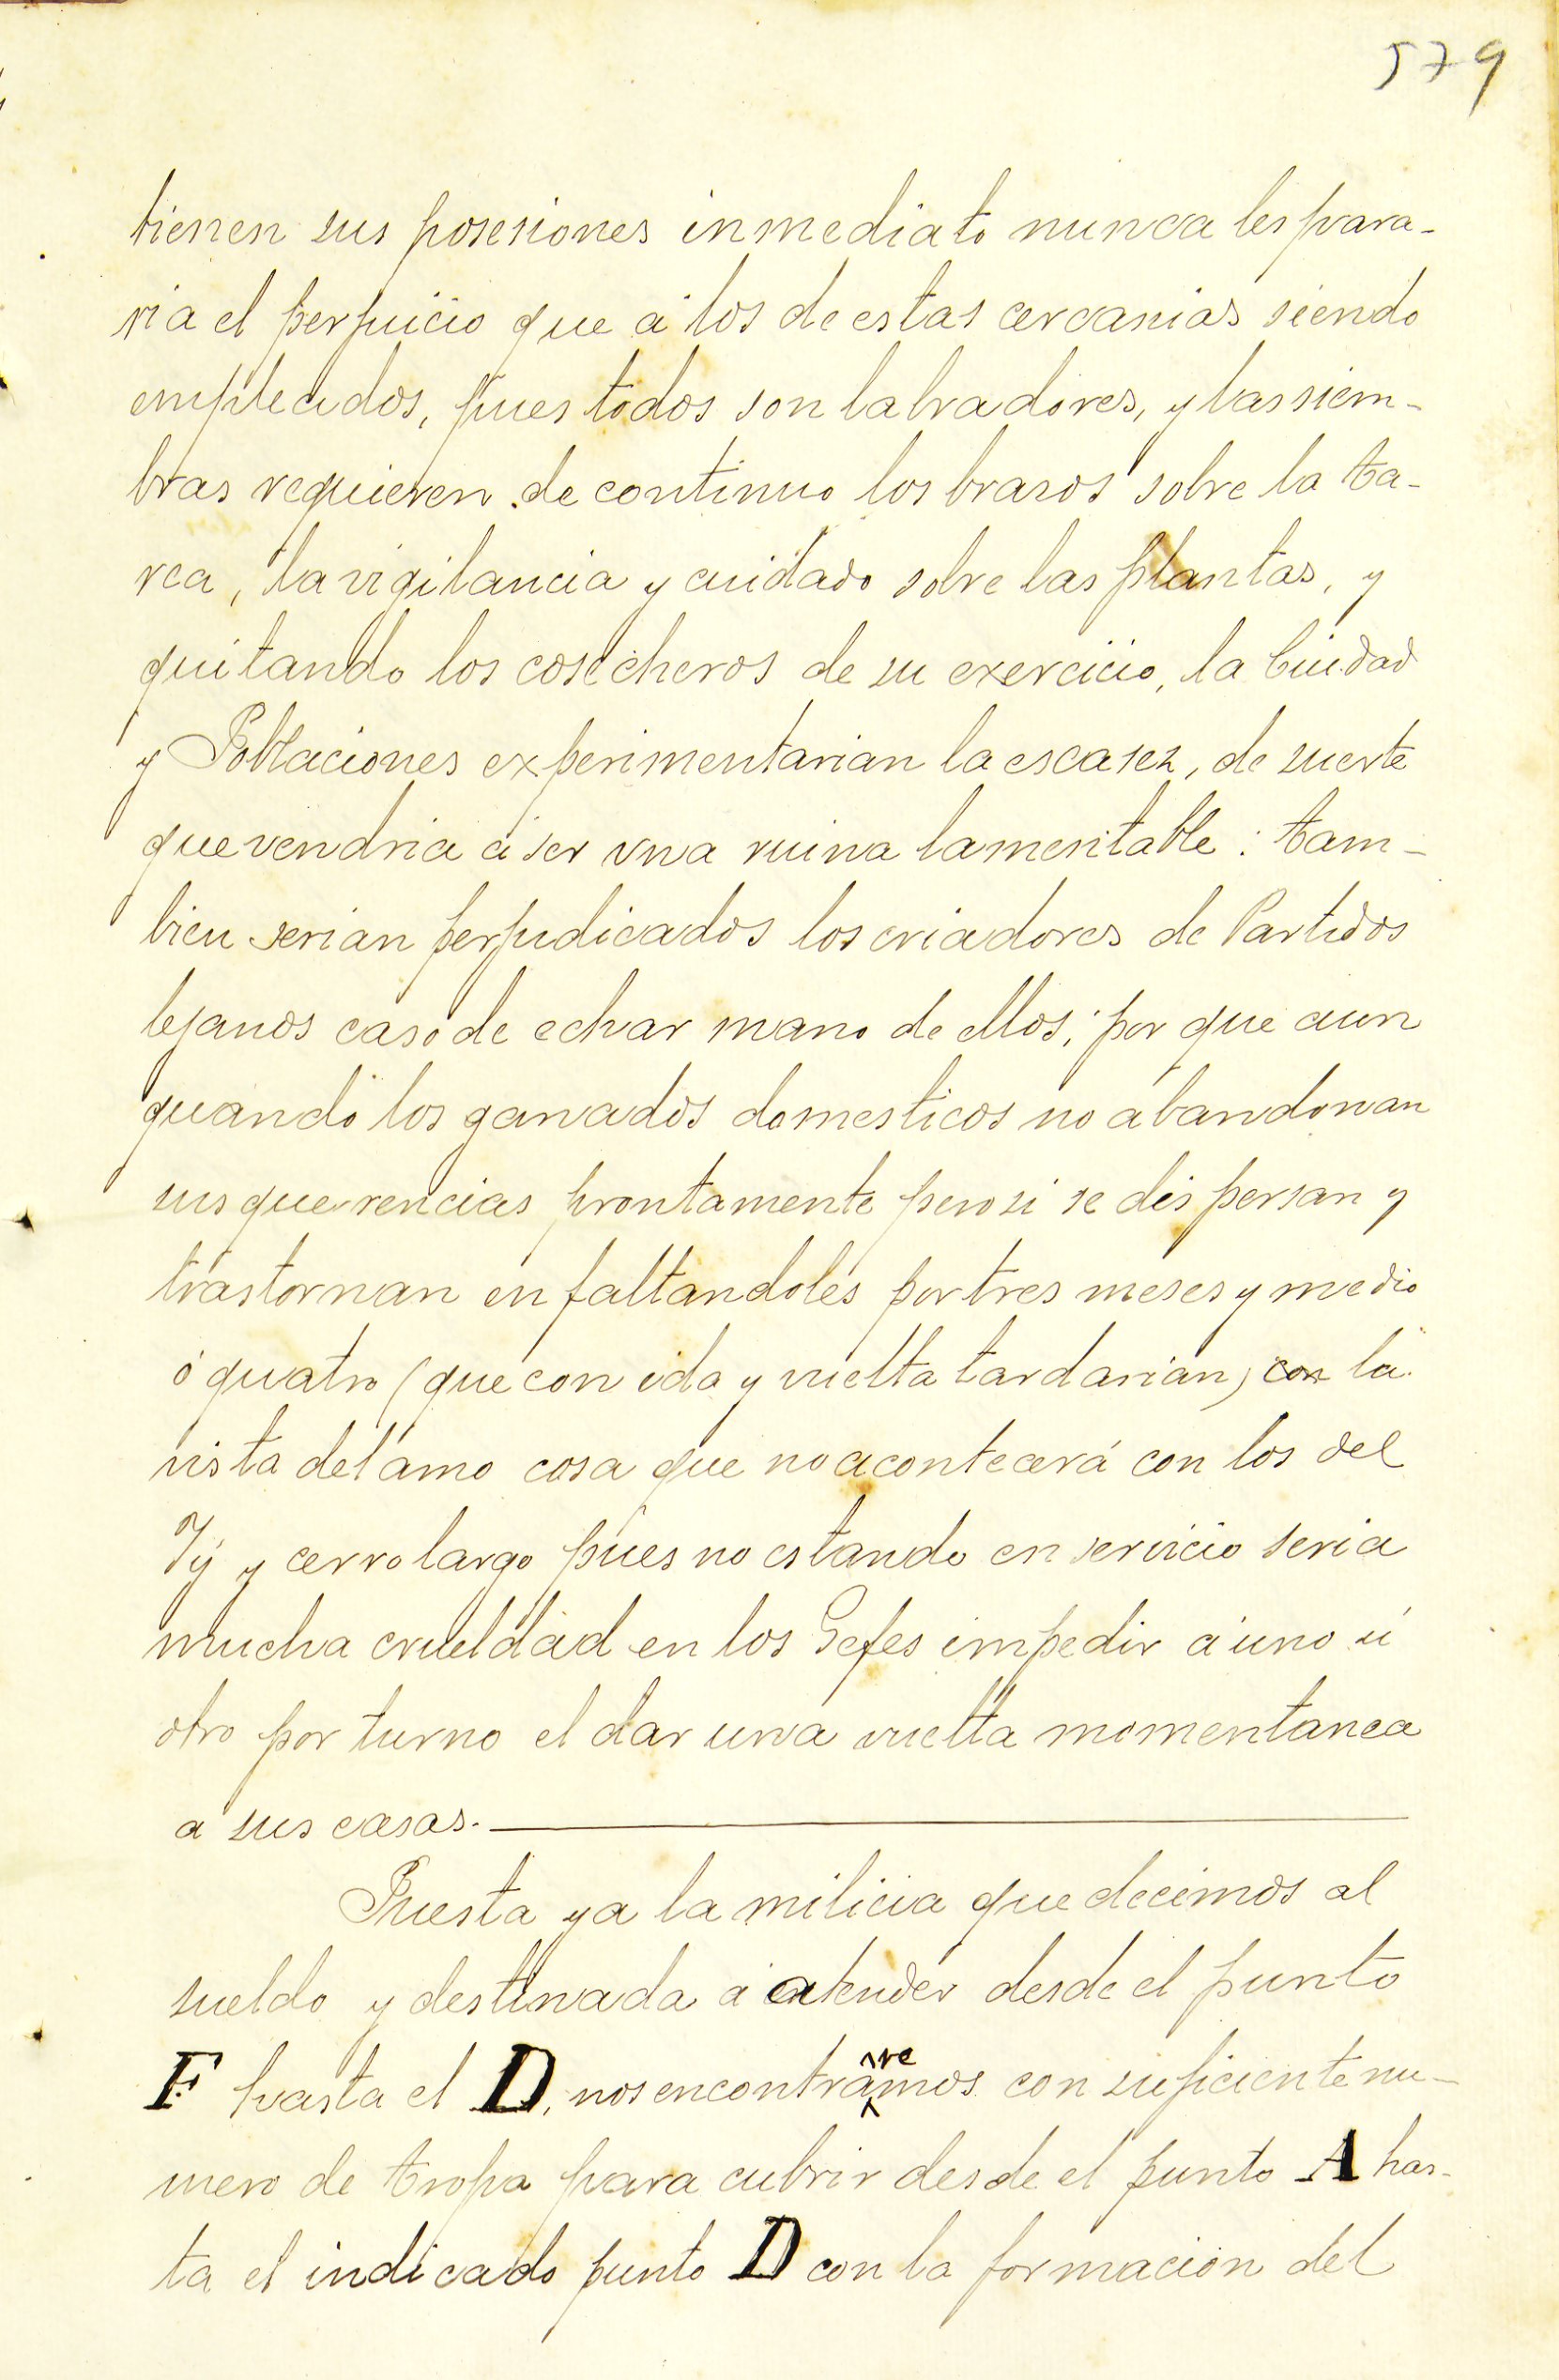 579
tienen sus posesiones inmediato nunca les para-
ria el perjuicio que á los de estas cercanias siendo
empleados, pues todos son labradores, y las siem-
bras requieren de continuo los brasos sobre la ta-
rea, la vigilancia y cuidado sobre las plantas, y
quitando los cosecheros de su exercicio, la Ciudad
y Poblaciones experimentarian la escasez, de suerte
que vendria á ser vna ruina lamentable: tam-
bien serian perjudicados los criadores de Partidos
lejanos caso de echar mano de ellos; por que aun
quando los ganados domesticos no abandonan
sus querencias prontamente pero si se dispersan y
trastornan en faltandoles por tres meses y medio
ó quatro (que con ida y vuelta tardarian) con la
vista del amo cosa que no acontecerá con los del
Yý y cerro largo pues no estando en servicio seria
mucha crueldad en los Gefes impedir á uno ú
otro por turno el dar una vuelta momentanea
a sus casas.
Puesta ya la milicia que decimos al
sueldo y destinada á atender desde el punto
F hasta el D, nos encontraremos con suficiente nu-
mero de tropa para cubrir desde el punto A has-
ta el indicado punto D con la formacion del